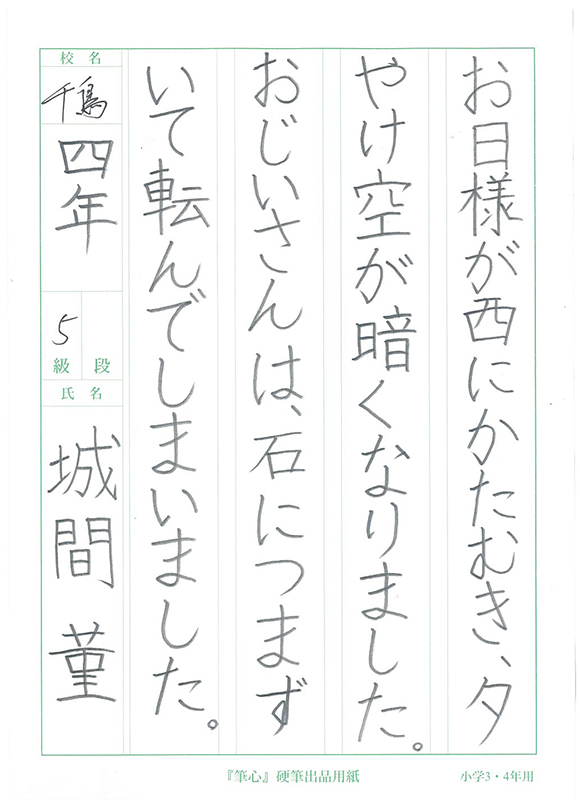 お日様が西にかたむき、夕
やけ空が暗くなりました。
おじいさんは、石につまず
いて転んでしまいました。
校名
千鳥
四年
5
級 段
氏名
城間 菫
『筆心』硬筆出品用紙
小学3・4年用